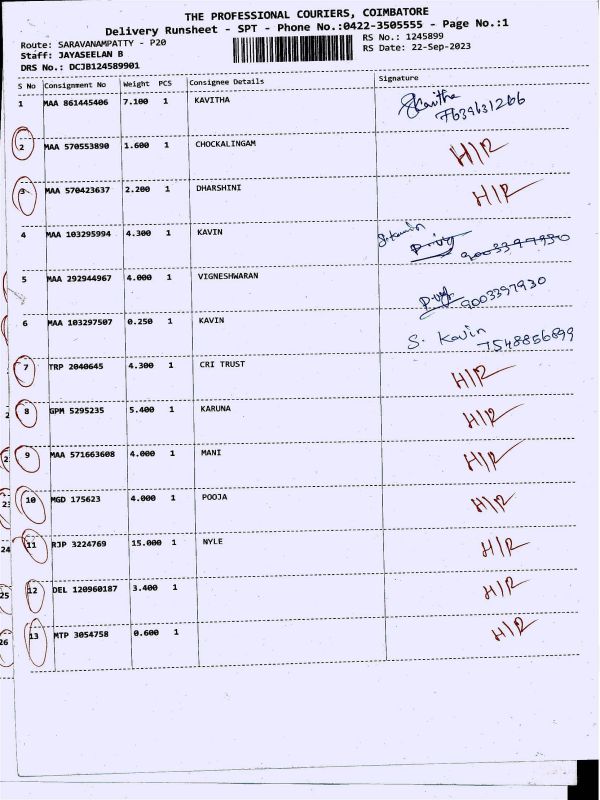 THE PROFESSIONAL COURIERS, COIMBATORE
Delivery Runsheet - SPT - Phone No.:0422-3505555 - Page No.:1
Route: SARAVANAMPATTY - P20
RS No.: 1245899
Staff: JAYASEELAN B
RS Date: 22-Sep-2023
DRS No.: DCJB124589901
S No Consignment No Weight PCS Consignee Details Signature
1 MAA 861445406 7.100 1 KAVITHA S Kavitha
7639631266
2 MAA 570553890 1.600 1 CHOCKALINGAM H/R
3 MAA 570423637 2.200 1 DHARSHINI H/R
4 MAA 103295994 4.300 1 KAVIN
9003397930
5 MAA 292944967 4.000 1 VIGNESHWARAN
9003397930
6 MAA 103297507 0.250 1 KAVIN S. Kavin
7548856899
7 TRP 2040645 4.300 1 CRI TRUST H/R
8 GPM 5295235 5.400 1 KARUNA H/R
9 MAA 571663608 4.000 1 MANI H/R
10 MGD 175623 4.000 1 POOJA H/R
11 RJP 3224769 15.000 1 NYLE H/R
12 DEL 120960187 3.400 1 H/R
13 MTP 3054758 0.600 1 H/R
23
24
25
26